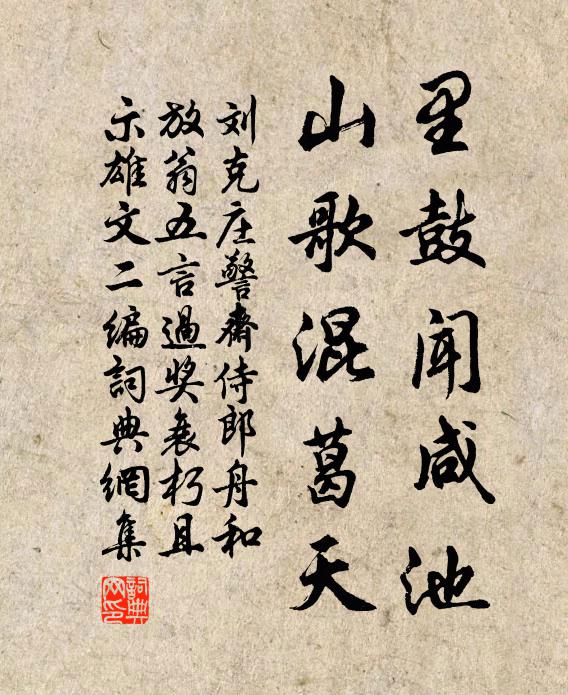 里鼓闻咸池
山歌混葛天
刘克庄警齋侍郎舟和
放翁五言過奖衰朽且
示雄文二编詞典網集
詞典网印